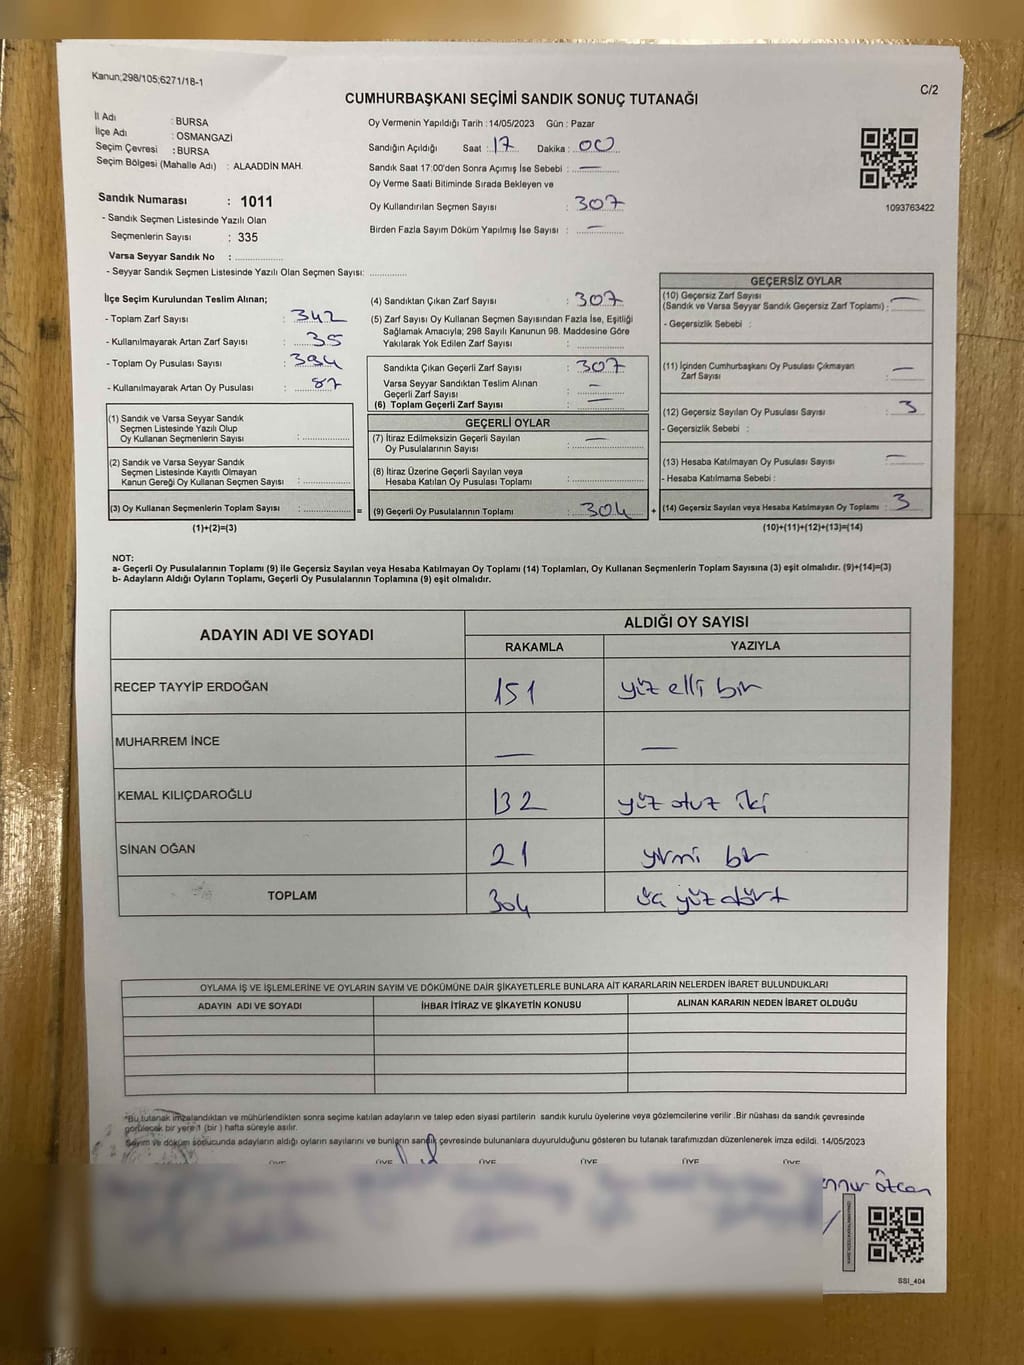 Kanun;298/105;6271/18-1
C/2
CUMHURBAŞKANI SEÇİMİ SANDIK SONUÇ TUTANAĞI
İl Adı : BURSA
İlçe Adı : OSMANGAZİ
Seçim Çevresi : BURSA
Seçim Bölgesi (Mahalle Adı) : ALAADDİN MAH.
Oy Vermenin Yapıldığı Tarih : 14/05/2023 Gün : Pazar
Sandığın Açıldığı Saat : 17 Dakika : 00
Sandık Saat 17:00'den Sonra Açımış İse Sebebi : —
Oy Verme Saati Bitiminde Sırada Bekleyen ve
Oy Kullandırılan Seçmen Sayısı : 307
Birden Fazla Sayım Döküm Yapılmış İse Sayısı : —
1093763422
Sandık Numarası : 1011
- Sandık Seçmen Listesinde Yazılı Olan
Seçmenlerin Sayısı : 335
Varsa Seyyar Sandık No : ................
- Seyyar Sandık Seçmen Listesinde Yazılı Olan Seçmen Sayısı: ............
İlçe Seçim Kurulundan Teslim Alınan;
- Toplam Zarf Sayısı : 342
- Kullanılmayarak Artan Zarf Sayısı : 35
- Toplam Oy Pusulası Sayısı : 394
- Kullanılmayarak Artan Oy Pusulası : 87
(1) Sandık ve Varsa Seyyar Sandık
Seçmen Listesinde Yazılı Olup
Oy Kullanan Seçmenlerin Sayısı : ................
(2) Sandık ve Varsa Seyyar Sandık
Seçmen Listesinde Kayıtlı Olmayan
Kanun Gereği Oy Kullanan Seçmen Sayısı : ................
(3) Oy Kullanan Seçmenlerin Toplam Sayısı : ................ =
(1)+(2)=(3)
(4) Sandıktan Çıkan Zarf Sayısı : 307
(5) Zarf Sayısı Oy Kullanan Seçmen Sayısından Fazla İse, Eşitliği
Sağlamak Amacıyla; 298 Sayılı Kanunun 98. Maddesine Göre
Yakılarak Yok Edilen Zarf Sayısı : ................
Sandıkta Çıkan Geçerli Zarf Sayısı : 307
Varsa Seyyar Sandıktan Teslim Alınan
Geçerli Zarf Sayısı : —
(6) Toplam Geçerli Zarf Sayısı : —
GEÇERLİ OYLAR
(7) İtiraz Edilmeksizin Geçerli Sayılan
Oy Pusulalarının Sayısı : —
(8) İtiraz Üzerine Geçerli Sayılan veya
Hesaba Katılan Oy Pusulası Toplamı : ................
(9) Geçerli Oy Pusulalarının Toplamı : 304 +
GEÇERSİZ OYLAR
(10) Geçersiz Zarf Sayısı
(Sandık ve Varsa Seyyar Sandık Geçersiz Zarf Toplamı) : —
- Geçersizlik Sebebi :
(11) İçinden Cumhurbaşkanı Oy Pusulası Çıkmayan
Zarf Sayısı : —
(12) Geçersiz Sayılan Oy Pusulası Sayısı : 3
- Geçersizlik Sebebi :
(13) Hesaba Katılmayan Oy Pusulası Sayısı : —
- Hesaba Katılmama Sebebi :
(14) Geçersiz Sayılan veya Hesaba Katılmayan Oy Toplamı : 3
(10)+(11)+(12)+(13)=(14)
NOT:
a- Geçerli Oy Pusulalarının Toplamı (9) ile Geçersiz Sayılan veya Hesaba Katılmayan Oy Toplamı (14) Toplamları, Oy Kullanan Seçmenlerin Toplam Sayısına (3) eşit olmalıdır. (9)+(14)=(3)
b- Adayların Aldığı Oyların Toplamı, Geçerli Oy Pusulalarının Toplamına (9) eşit olmalıdır.
ADAYIN ADI VE SOYADI ALDIĞI OY SAYISI
RAKAMLA YAZIYLA
RECEP TAYYİP ERDOĞAN 151 yüz elli bir
MUHARREM İNCE — —
KEMAL KILIÇDAROĞLU 132 yüz otuz iki
SİNAN OĞAN 21 yirmi bir
TOPLAM 304 üç yüz dört
OYLAMA İŞ VE İŞLEMLERİNE VE OYLARIN SAYIM VE DÖKÜMÜNE DAİR ŞİKAYETLERLE BUNLARA AİT KARARLARIN NELERDEN İBARET BULUNDUKLARI
ADAYIN ADI VE SOYADI İHBAR İTİRAZ VE ŞİKAYETİN KONUSU ALINAN KARARIN NEDEN İBARET OLDUĞU
*Bu tutanak imzalandıktan ve mühürlendikten sonra seçime katılan adayların ve talep eden siyasi partilerin sandık kurulu üyelerine veya gözlemcilerine verilir .Bir nüshası da sandık çevresinde
görülecek bir yere 1 (bir ) hafta süreyle asılır.
Sayım ve döküm sonucunda adayların aldığı oyların sayılarını ve bunların sandık çevresinde bulunanlara duyurulduğunu gösteren bu tutanak tarafımızdan düzenlenerek imza edildi. 14/05/2023
ÜYE ÜYE ÜYE ÜYE ÜYE ÜYE
Özcan
SSI_404